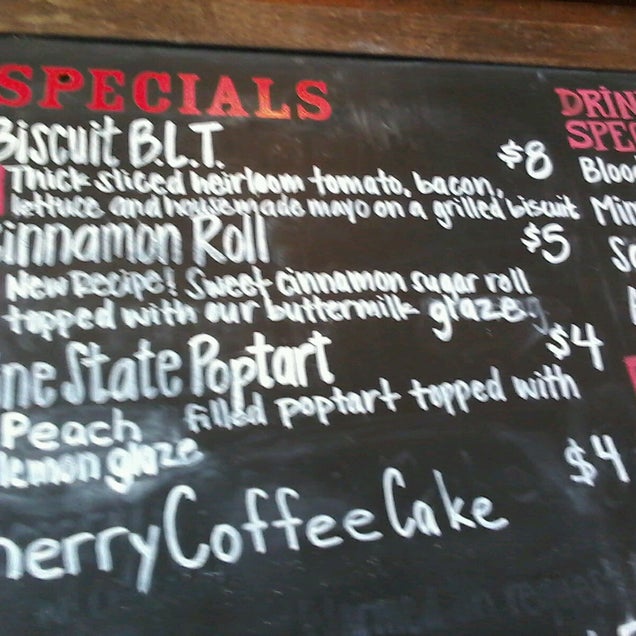 SPECIALS
Biscuit B.L.T. $8
Thick sliced heirloom tomato, bacon,
lettuce and housemade mayo on a grilled biscuit
innamon Roll $5
New Recipe! Sweet cinnamon sugar roll
topped with our buttermilk glaze
ine State Poptart $4
Peach filled poptart topped with
lemon glaze
herry Coffee Cake $4
DRIN
SPE
Bloo
Mim